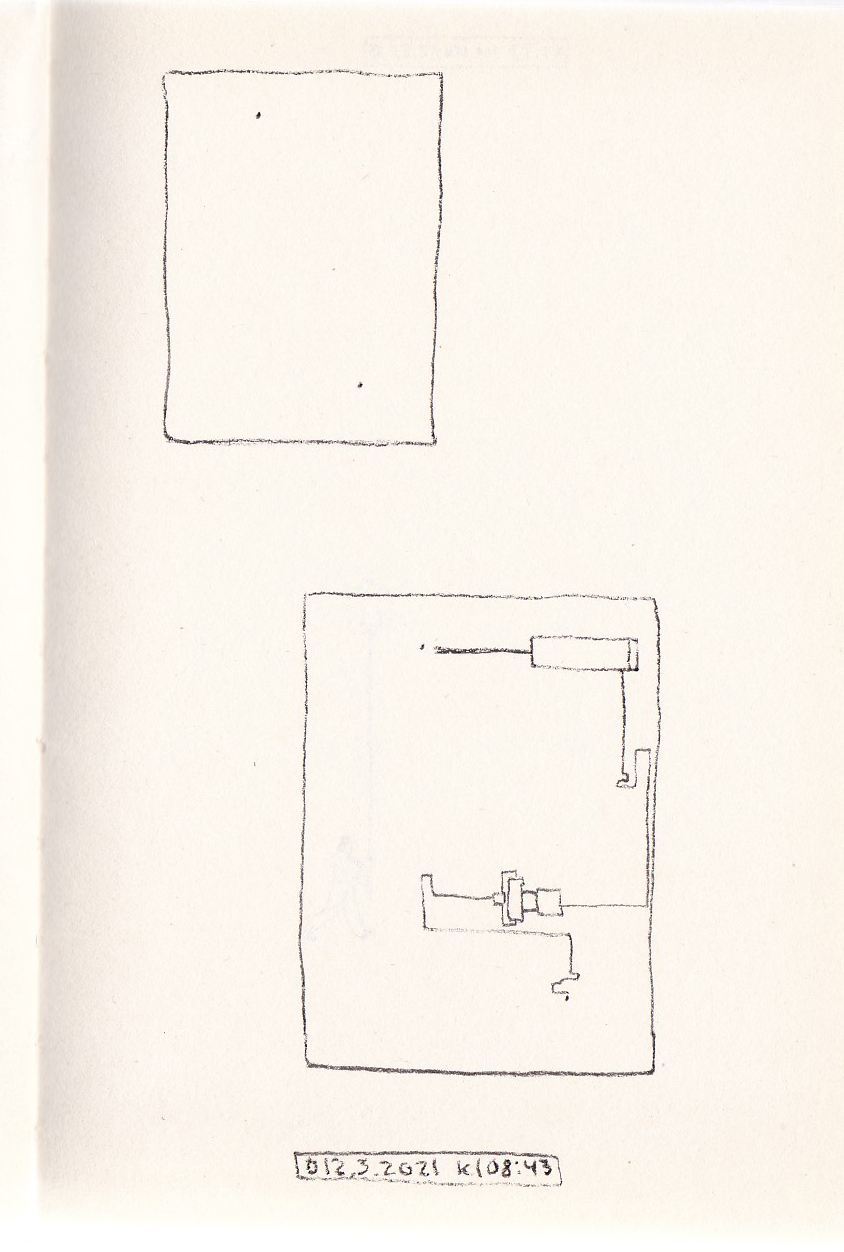 D12.3.2021 kl08:43